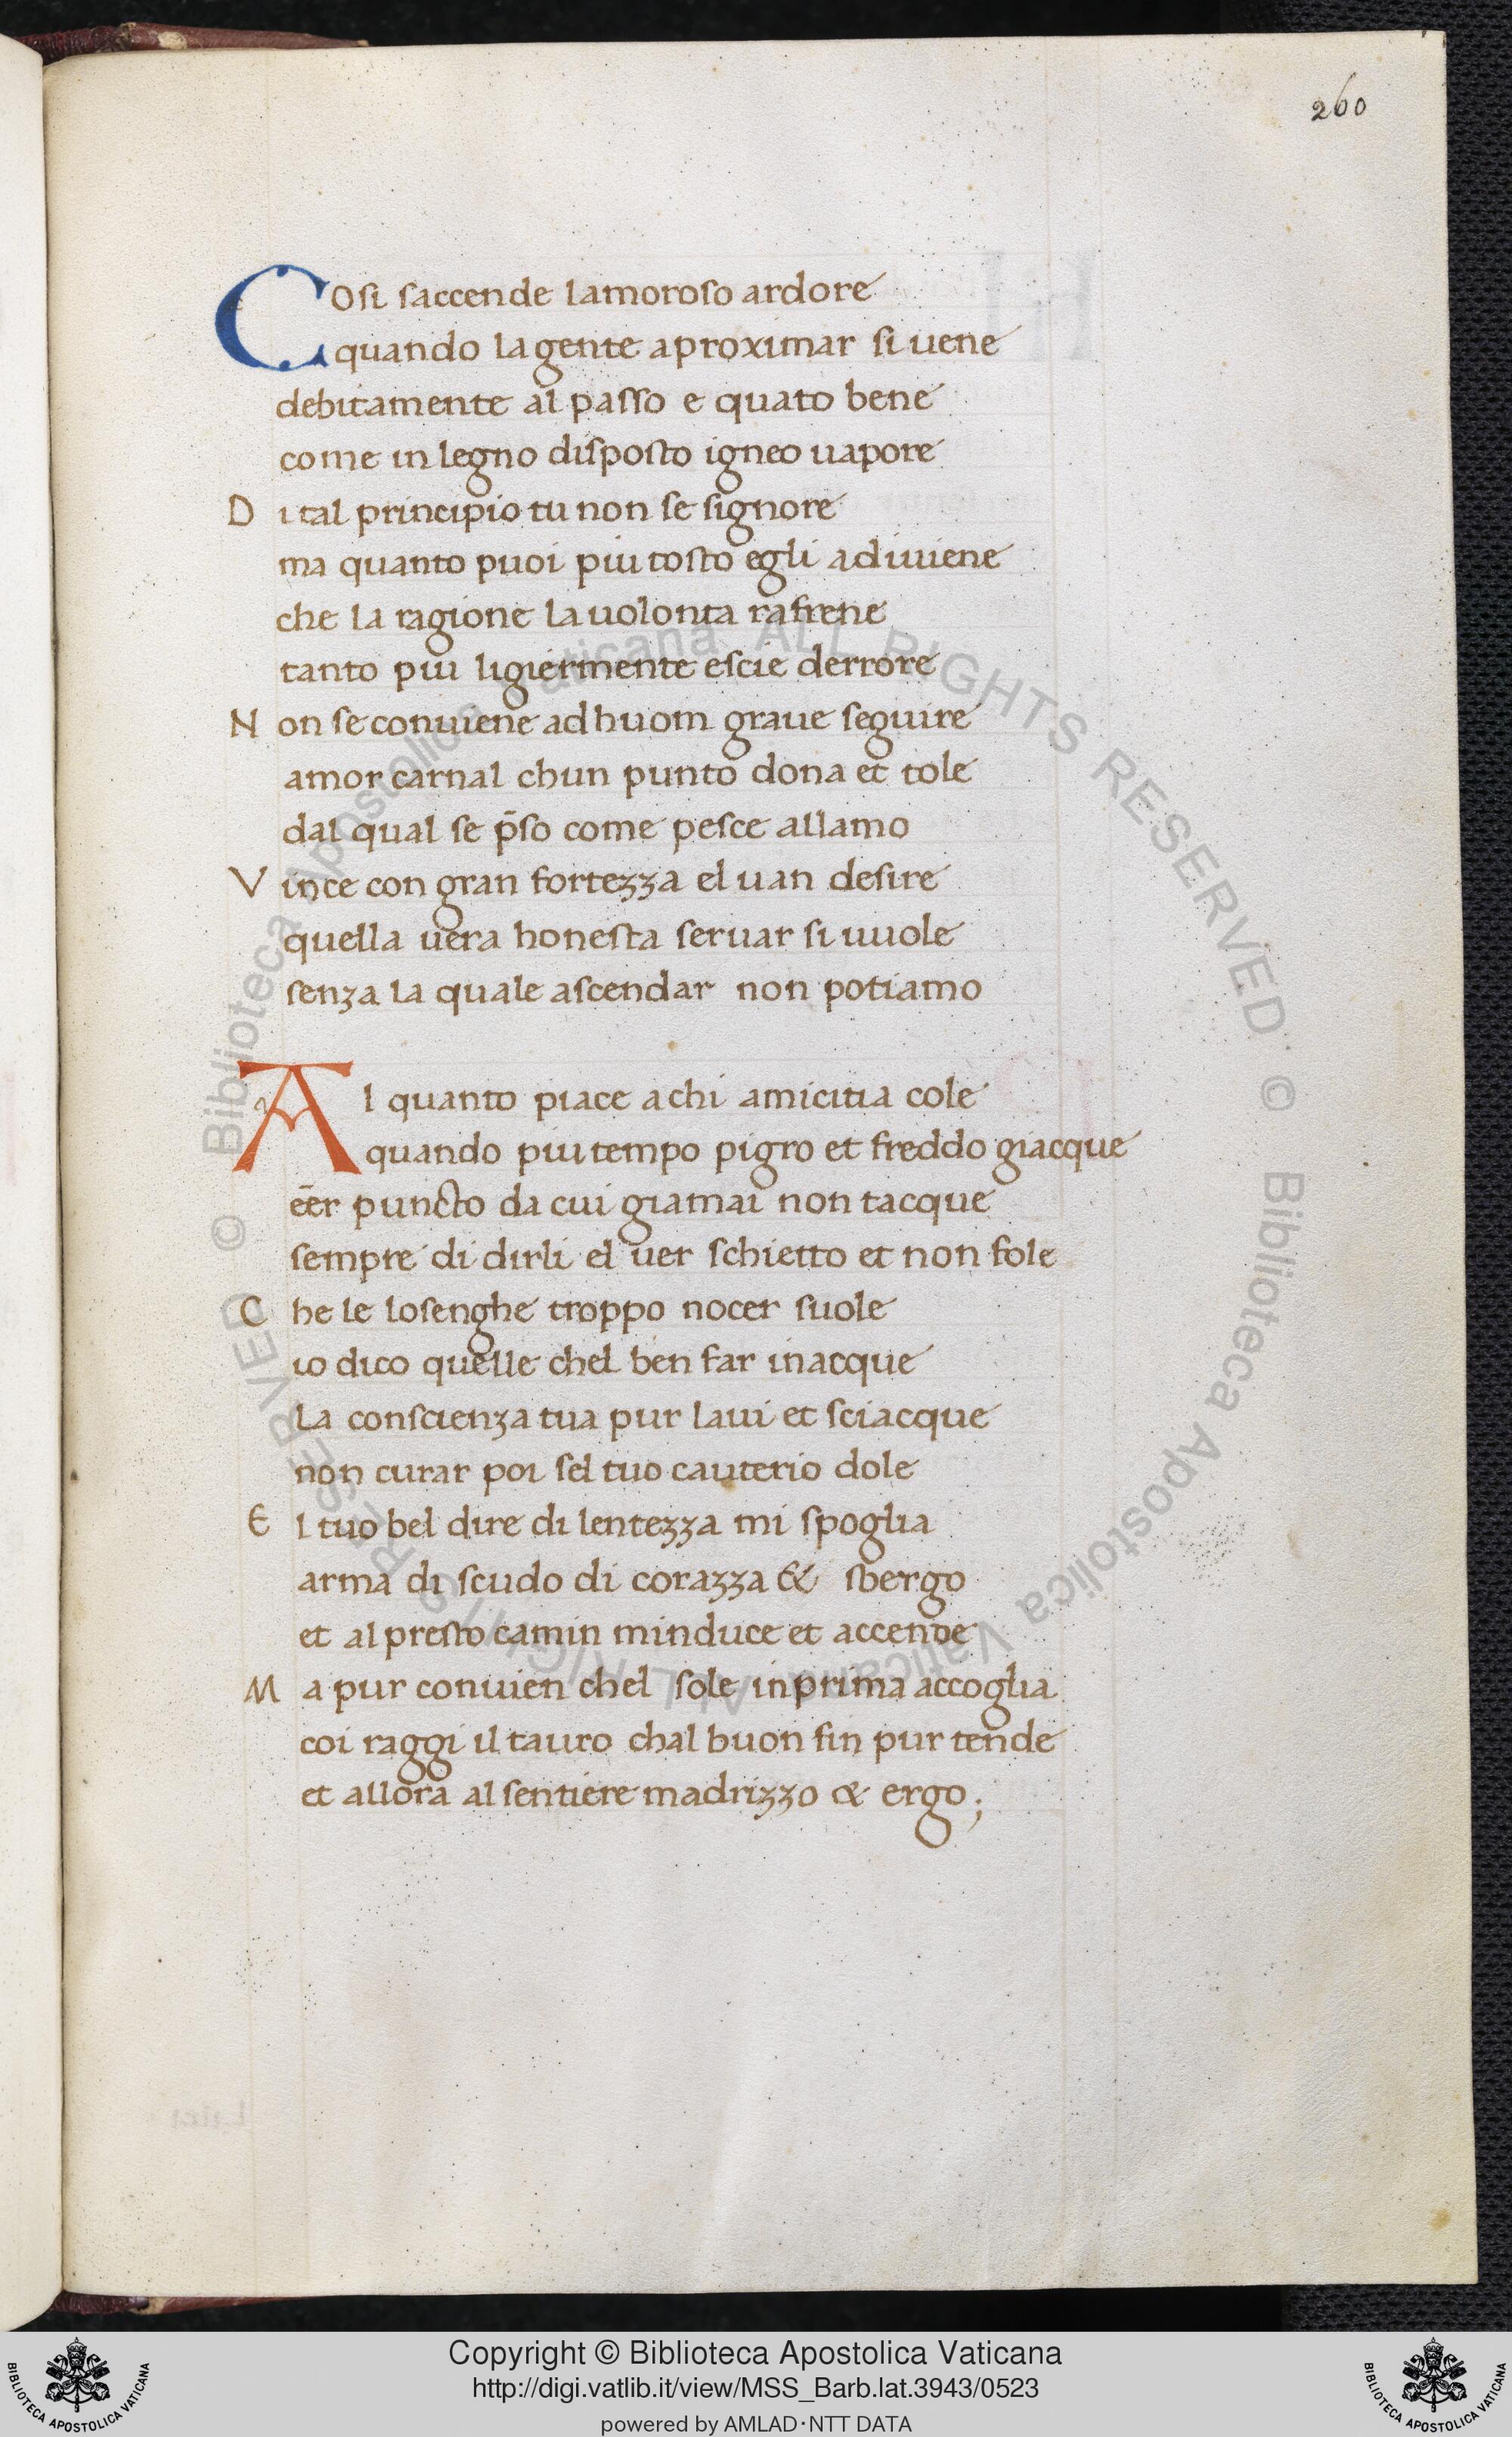 260
Cosi saccende lamoroso ardore
quando la gente aproximar si uene
debitamente al passo e quato bene
come in legno disposto igneo uapore
D i tal principio tu non se signore
ma quanto puoi piu tosto egli adiuiene
che la ragione la uolonta rafrene
tanto piu ligiermente escie derrore
N on se conuiene ad huom graue seguire
amor carnal chun punto dona et tole
dal qual se p̄so come pesce allamo
V ince con gran fortezza el uan desire
quella uera honesta seruar si uuole
senza la quale ascendar non potiamo
Al quanto piace a chi amicitia cole
quando piu tempo pigro et freddo giacque
eēr puncto da cui giamai non tacque
sempre di dirli el uer schietto et non fole
C he le losenghe troppo nocer suole
io dico quelle chel ben far inacque
La conscienza tua pur laui et sciacque
non curar poi sel tuo cauterio dole
E l tuo bel dire di lentezza mi spoglia
arma di scudo di corazza & sbergo
et al presto camin minduce et accende
M a pur conuien chel sole inprima accoglia
coi raggi il tauro chal buon fin pur tende
et allora al sentiere madrizzo & ergo;
© Biblioteca Apostolica Vaticana ALL RIGHTS RESERVED © Biblioteca Apostolica Vaticana ALL RIGHTS RESERVED
Copyright © Biblioteca Apostolica Vaticana
http://digi.vatlib.it/view/MSS_Barb.lat.3943/0523
powered by AMLAD·NTT DATA
BIBLIOTECA APOSTOLICA VATICANA
BIBLIOTECA APOSTOLICA VATICANA